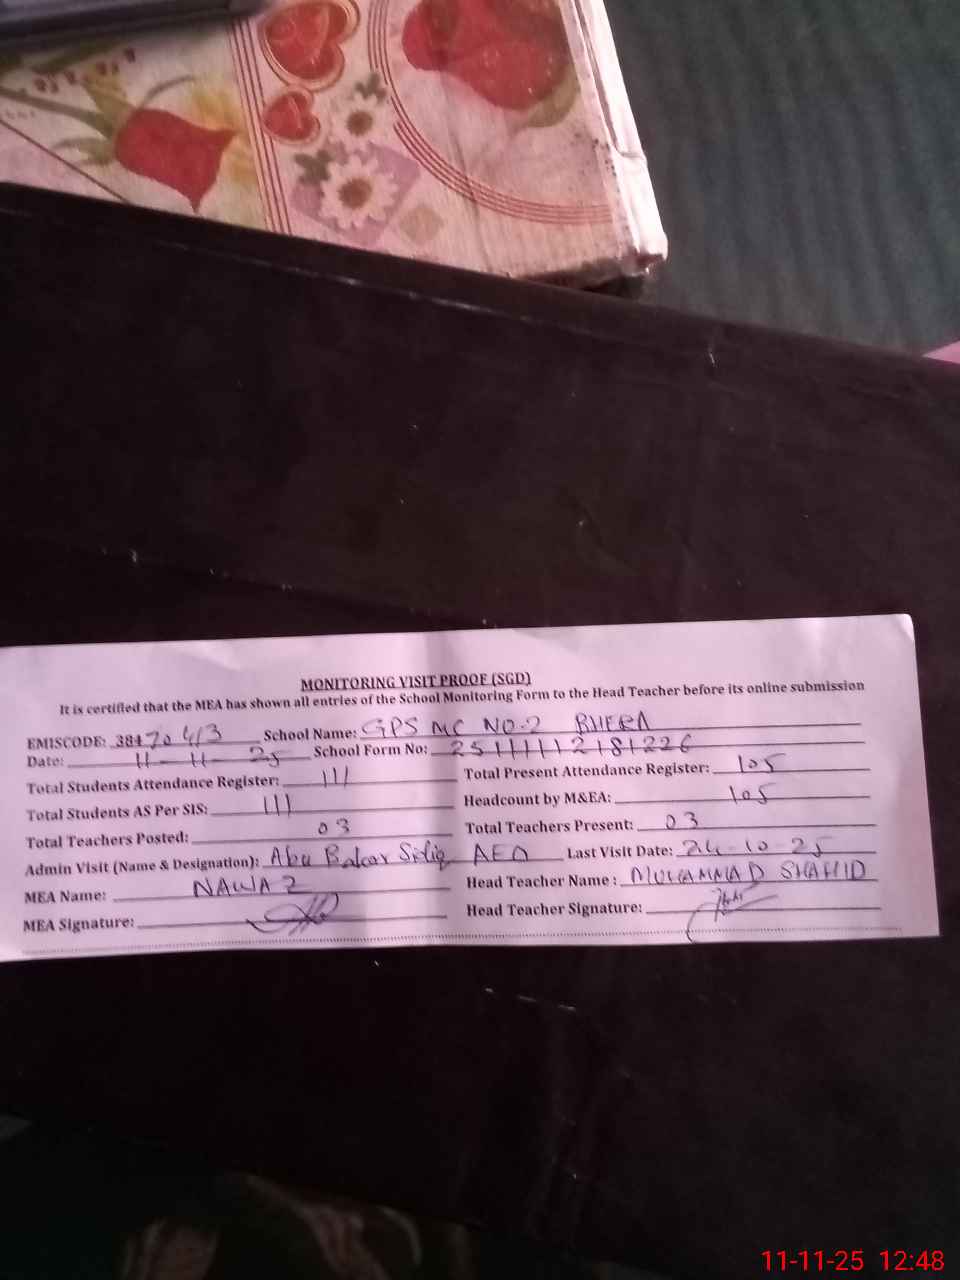 MONITORING VISIT PROOF (SGD)
It is certified that the MEA has shown all entries of the School Monitoring Form to the Head Teacher before its online submission
EMISCODE: 38470413 School Name: GPS MC NO-2 BHERA
Date: 11-11-25 School Form No: 25111112181226
Total Students Attendance Register: 111 Total Present Attendance Register: 105
Total Students AS Per SIS: 111 Headcount by M&EA: 105
Total Teachers Posted: 03 Total Teachers Present: 03
Admin Visit (Name & Designation): Abu Bakar Sidiq AEO Last Visit Date: 24-10-25
MEA Name: NAWAZ Head Teacher Name : MUHAMMAD SHAHID
MEA Signature: Head Teacher Signature:
11-11-25 12:48